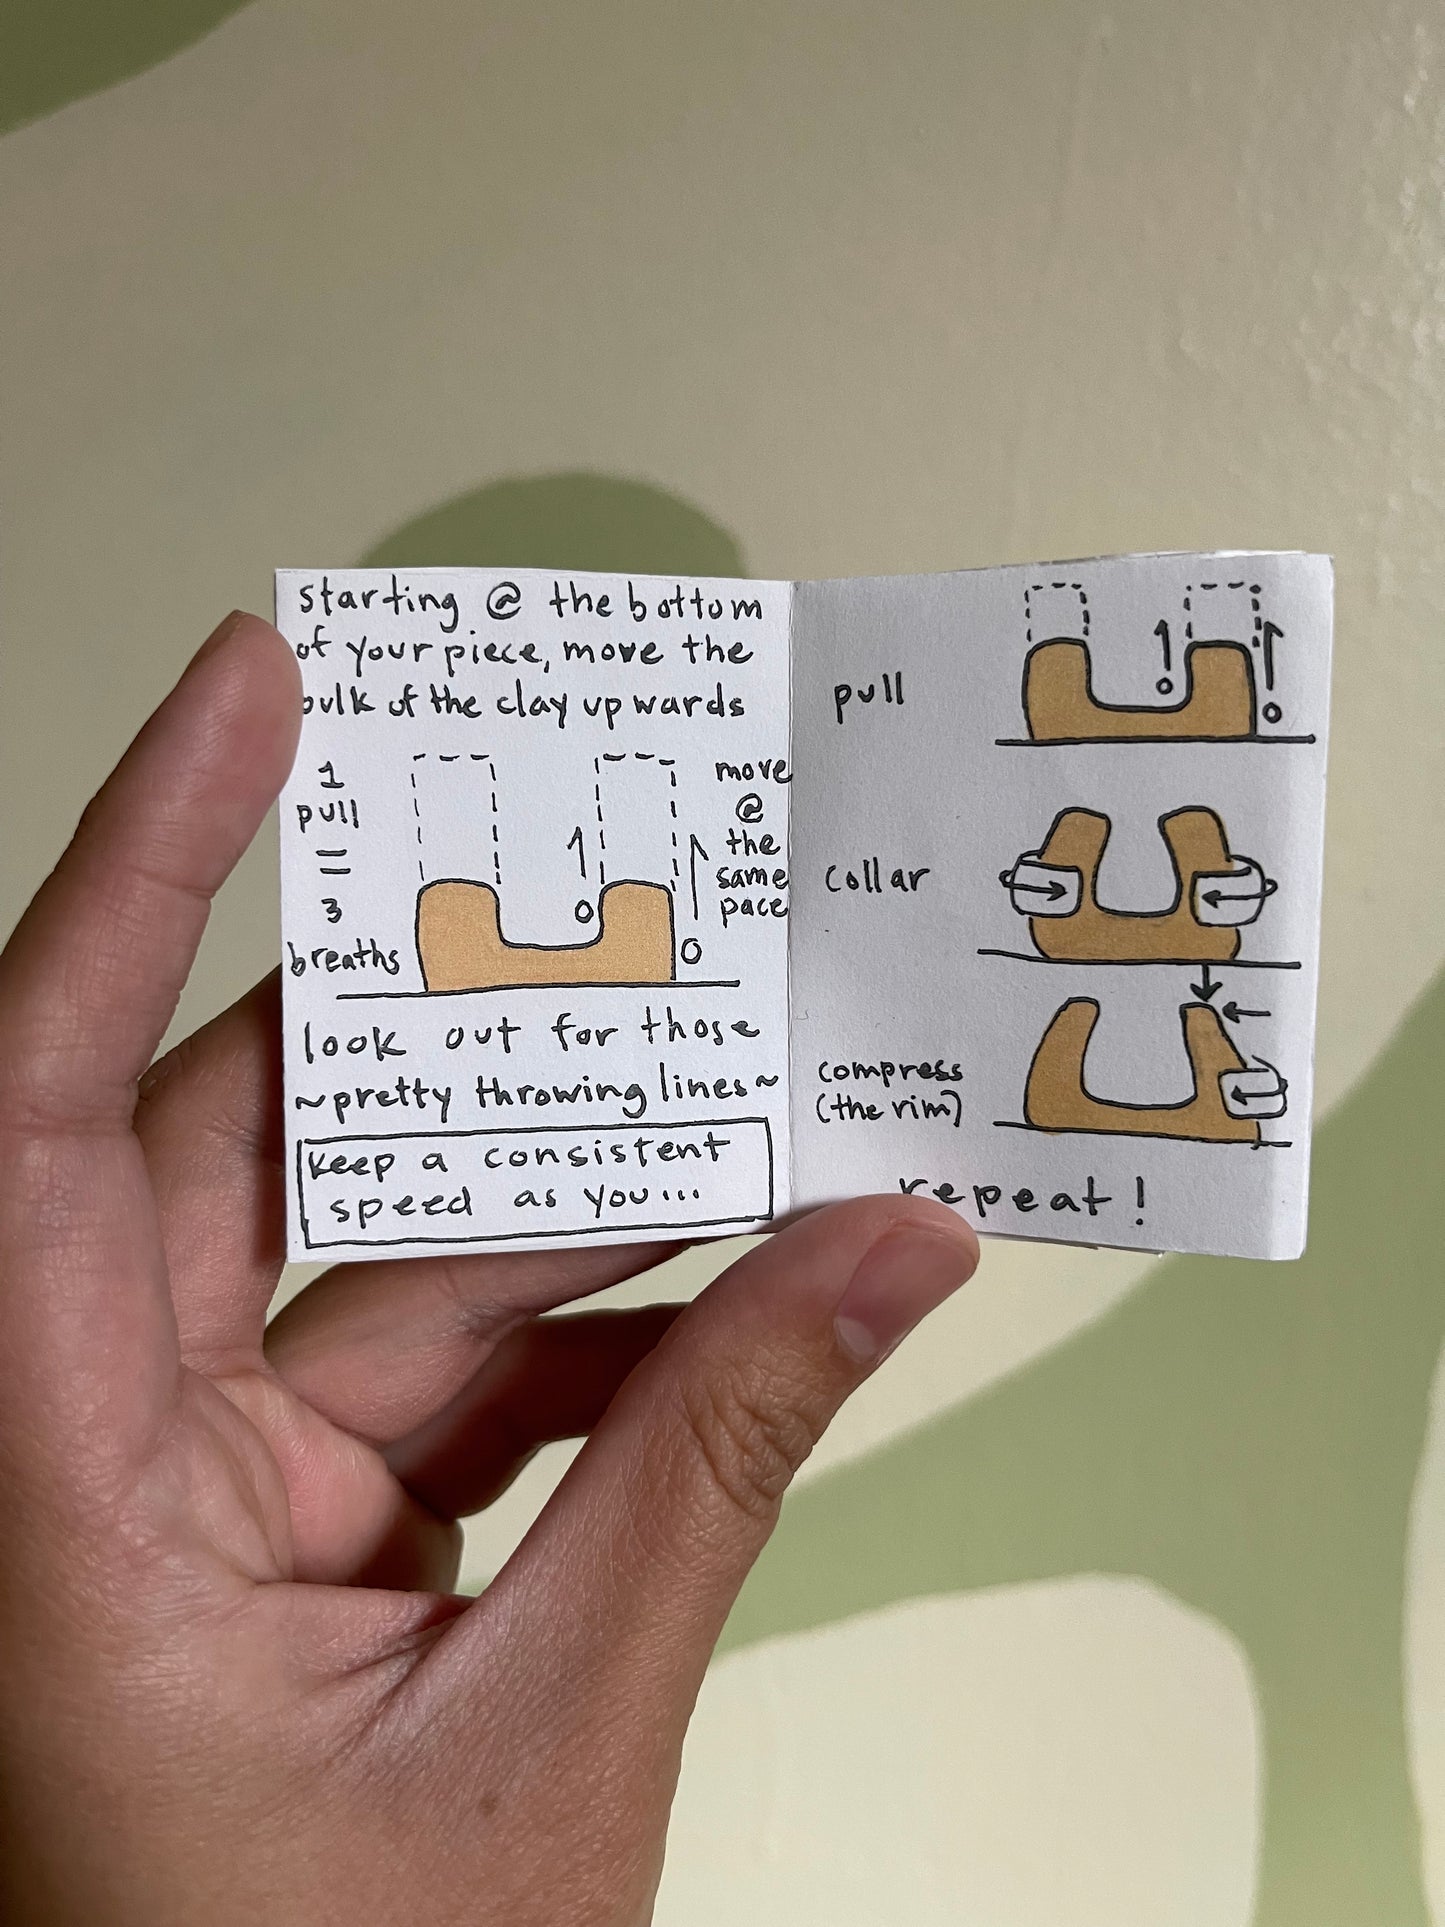 starting @ the bottom
of your piece, move the
bulk of the clay upwards
1
pull
=
3
breaths
move
@
the
same
pace
look out for those
~pretty throwing lines~
keep a consistent
speed as you...
pull
collar
compress
(the rim)
repeat!